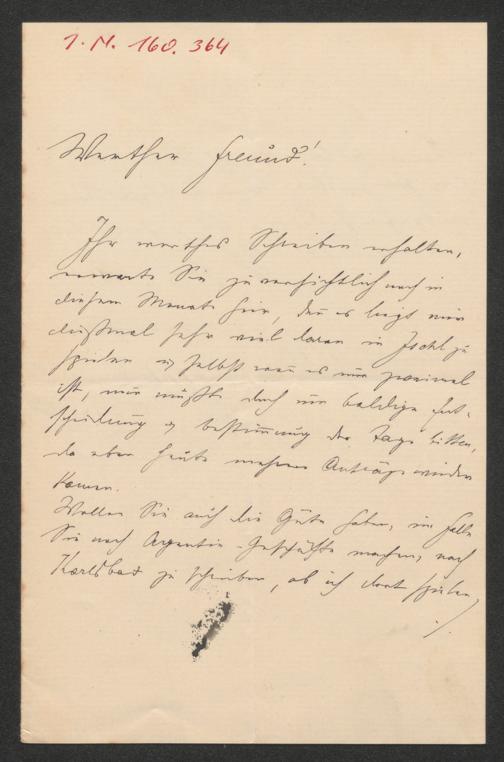 I. N. 160.364
Werther Freund!
Ihr werthes Schreiben erhalten,
erwarte Sie zuversichtlich noch in
diesem Monate hier, da es liegt mir
dießmal sehr viel daran in Ischl zu
spielen u selbst wenn es nur zweimal
ist, nur müßte doch um baldige Ent-
scheidung u bestimmung der Tage bitten,
da aber heute mehrere Anträge wieder
kamen.
Wollen Sie auch die Güte haben, im Falle
Sie noch Agentie-Geschäfte machen, nach
Karlsbad zu schreiben, ob ich dort spielen
./.